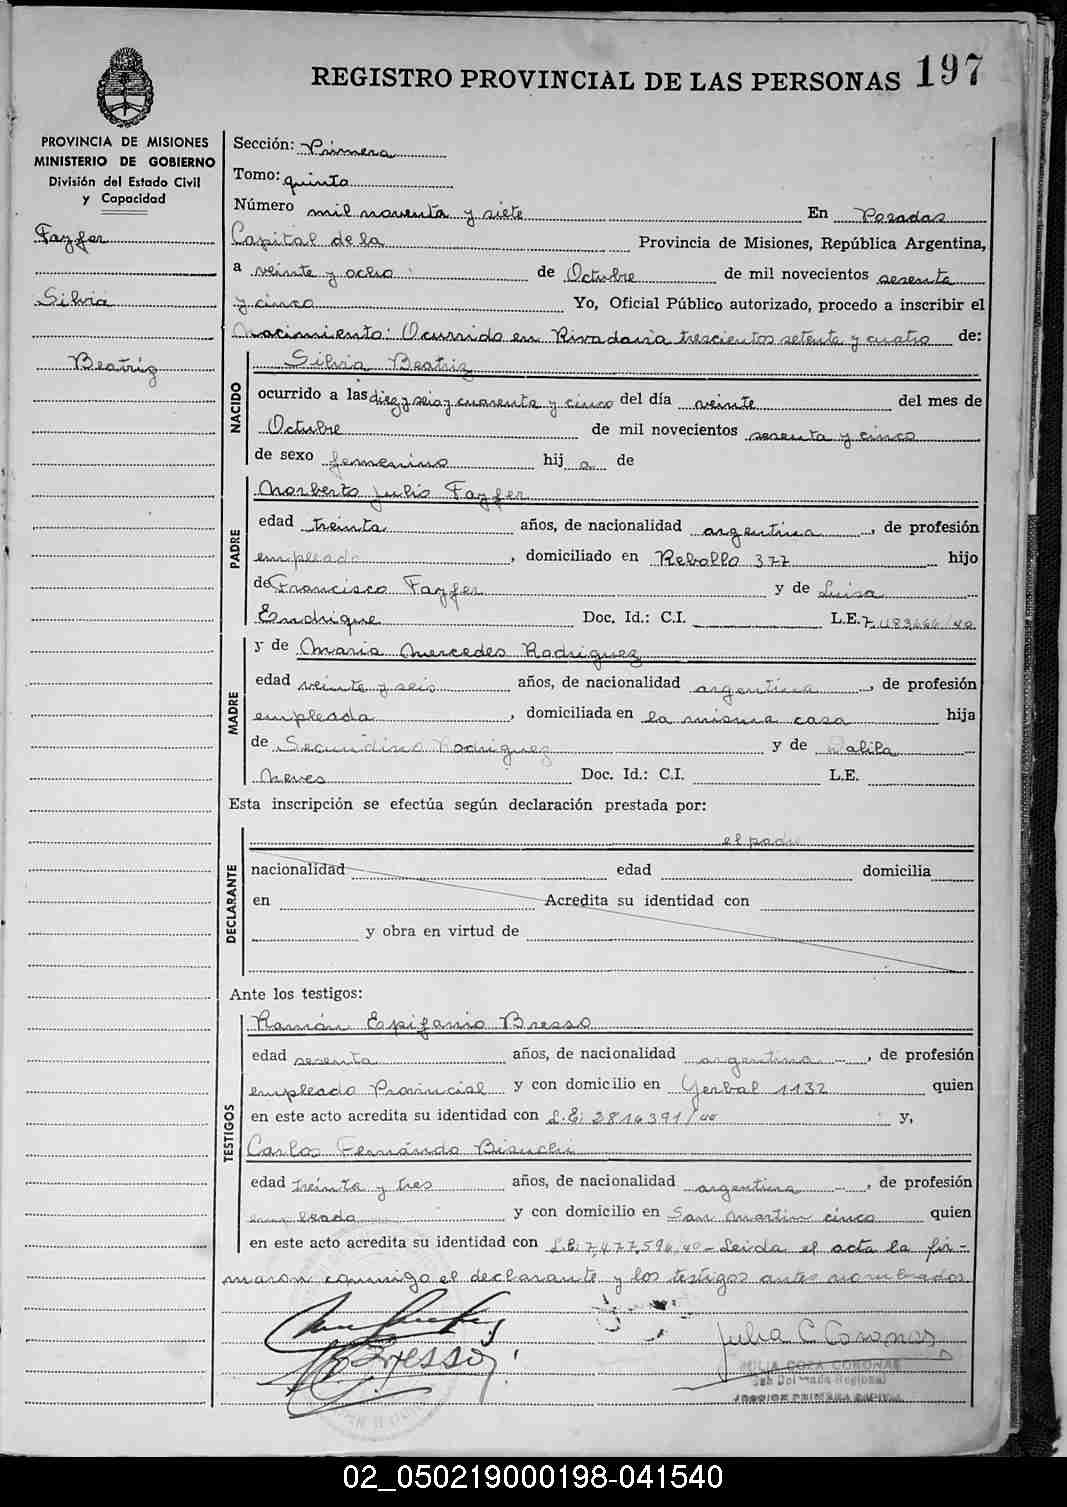 REGISTRO PROVINCIAL DE LAS PERSONAS 197
PROVINCIA DE MISIONES
MINISTERIO DE GOBIERNO
División del Estado Civil
y Capacidad
Fayfer
Silvia
Beatriz
Sección: Primera
Tomo: quinto
Número mil noventa y siete En Posadas
Capital de la Provincia de Misiones, República Argentina,
a veinte y ocho de Octubre de mil novecientos sesenta
y cinco Yo, Oficial Público autorizado, procedo a inscribir el
nacimiento: Ocurrido en Rivadavia trescientos setenta y cuatro de:
NACIDO
Silvia Beatriz
ocurrido a las diez y seis y cuarenta y cinco del día veinte del mes de
Octubre de mil novecientos sesenta y cinco
de sexo femenino hij a de
PADRE
Norberto Julio Fayfer
edad treinta años, de nacionalidad argentina, de profesión
empleado, domiciliado en Rebollo 377 hijo
de Francisco Fayfer y de Luisa
Doc. Id.: C.I. L.E.
MADRE
y de Maria Mercedes Rodriguez
edad veinte y seis años, de nacionalidad argentina, de profesión
empleada, domiciliada en la misma casa hija
de Secundino Rodriguez y de Dalila
Neves Doc. Id.: C.I. L.E.
Esta inscripción se efectúa según declaración prestada por:
DECLARANTE
el padre
nacionalidad edad domicilia
en Acredita su identidad con
y obra en virtud de
Ante los testigos:
TESTIGOS
Ramón Epifanio Bresso
edad sesenta años, de nacionalidad argentina, de profesión
empleado Provincial y con domicilio en Yerbal 1132 quien
en este acto acredita su identidad con L.E: 2816391/40 y,
Carlos Fernándo Bianchi
edad treinta y tres años, de nacionalidad argentina, de profesión
empleado y con domicilio en San Martin cinco quien
en este acto acredita su identidad con L.E: 7,477,596,40 - Leida el acta la fir-
maron conmigo el declarante y los testigos antes nombrados.
Bresso
Julia C Coronas
JULIA COZA CORONAS
02_050219000198-041540